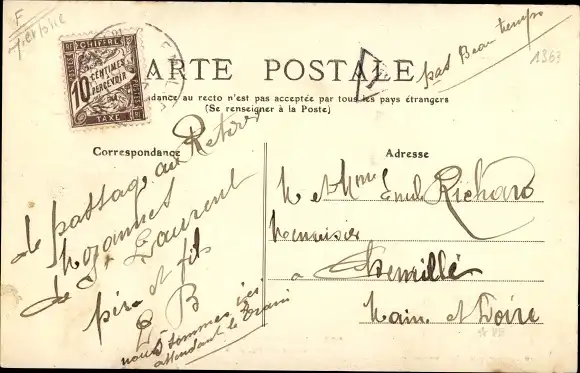 F
CHIFFRE
10
CENTIMES
A
PERCEVOIR
TAXE
CARTE POSTALE
pas Beau temps
1363
La correspondance au recto n'est pas acceptée par tous les pays étrangers
(Se renseigner à la Poste)
Correspondance
de passage au Retour
de St Laurent
père et fils
L B
nous sommes ici
attendant le train
Adresse
M et Mme Emile Richard
Menuisier
a Chemillé
Maine et Loire